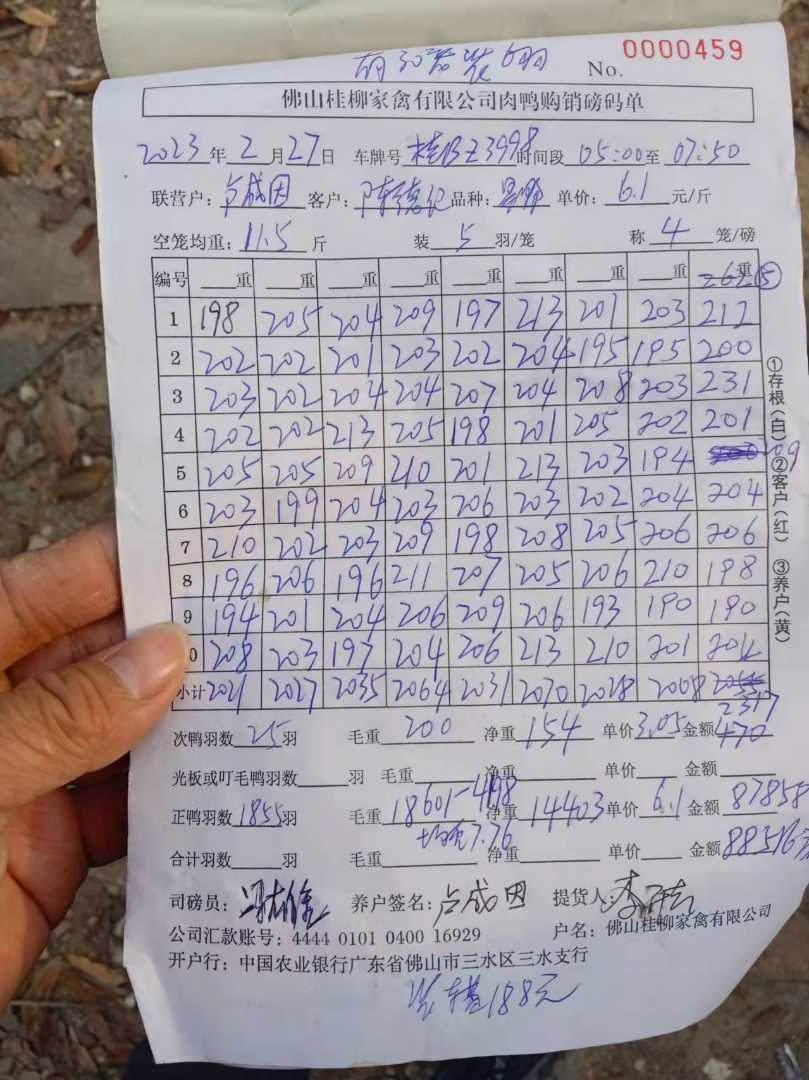 No. 0000459
佛山桂柳家禽有限公司肉鸭购销磅码单
2023年2月27日 车牌号 桂BZ3998 时间段 05:00至 07:50
联营户: 卢成因 客户: 陈德记 品种: 单价: 6.1 元/斤
空笼均重: 11.5 斤 装 5 羽/笼 称 4 笼/磅
编号 重 重 重 重 重 重 重 重 重 ⑤
1 198 205 204 209 197 213 201 203 212
2 202 202 201 203 202 204 195 195 200
3 203 202 204 204 207 204 208 203 231
4 202 202 213 205 198 201 205 202 201
5 205 205 209 210 201 213 203 194 209
6 203 199 204 203 206 203 202 204 204
7 210 202 203 209 198 208 205 206 206
8 196 206 196 211 207 205 206 210 198
9 194 201 204 206 209 206 193 190 190
0 208 203 197 204 206 213 210 201 204
小计 2021 2027 2035 2064 2031 2070 2028 2008
2317
次鸭羽数 25 羽 毛重 200 净重 154 单价 3.05 金额 470
光板或叮毛鸭羽数 羽 毛重 净重 单价 金额
正鸭羽数 1855 羽 毛重 18601-4198 净重 14403 单价 6.1 金额 87858
均重7.76
合计羽数 羽 毛重 净重 单价 金额 88516
司磅员: 养户签名: 卢成因 提货人:
公司汇款账号: 4444 0101 0400 16929 户名: 佛山桂柳家禽有限公司
开户行: 中国农业银行广东省佛山市三水区三水支行
188元
①存根(白) ②客户(红) ③养户(黄)